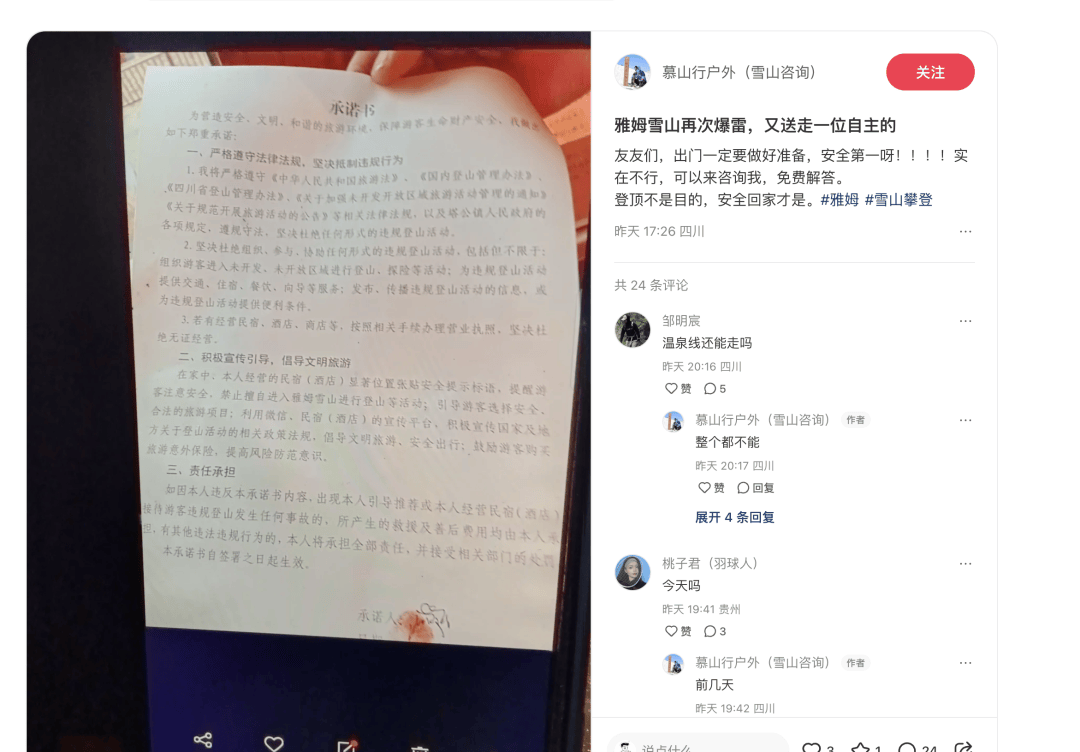 承诺书
为营造安全、文明、和谐的旅游环境，保障游客生命财产安全，我做出
如下郑重承诺：
一、严格遵守法律法规，坚决抵制违规行为
1.我将严格遵守《中华人民共和国旅游法》、《国内登山管理办法》、
《四川省登山管理办法》、《关于加强未开发开放区域旅游活动管理的通知》
《关于规范开展旅游活动的公告》等相关法律法规，以及塔公镇人民政府的
各项规定，遵规守法，坚决杜绝任何形式的违规登山活动。
2.坚决杜绝组织、参与、协助任何形式的违规登山活动，包括但不限于：
组织游客进入未开发、未开放区域进行登山、探险等活动；为违规登山活动
提供交通、住宿、餐饮、向导等服务；发布、传播违规登山活动的信息，或
为违规登山活动提供便利条件。
3.若有经营民宿、酒店、商店等，按照相关手续办理营业执照，坚决杜
绝无证经营。
二、积极宣传引导，倡导文明旅游
在家中、本人经营的民宿（酒店）显著位置张贴安全提示标语，提醒游
客注意安全，禁止擅自进入雅姆雪山进行登山等活动；引导游客选择安全、
合法的旅游项目；利用微信、民宿（酒店）的宣传平台、积极宣传国家及地
方关于登山活动的相关政策法规，倡导文明旅游、安全出行；鼓励游客购买
旅游意外保险，提高风险防范意识。
三、责任承担
如因本人违反本承诺书内容，出现本人引导推荐或本人经营民宿（酒店）
接待游客违规登山发生任何事故的，所产生的救援及善后费用均由本人承
担，有其他违法违规行为的，本人将承担全部责任，并接受相关部门的处罚
本承诺书自签署之日起生效。
承诺人：
慕山行户外（雪山咨询）
关注
雅姆雪山再次爆雷，又送走一位自主的
友友们，出门一定要做好准备，安全第一呀！！！！实
在不行，可以来咨询我，免费解答。
登顶不是目的，安全回家才是。#雅姆 #雪山攀登
昨天 17:26 四川
共 24 条评论
邹明宸
温泉线还能走吗
昨天 20:16 四川
赞 5
慕山行户外（雪山咨询） 作者
整个都不能
昨天 20:17 四川
赞 回复
展开 4 条回复
桃子君（羽球人）
今天吗
昨天 19:41 贵州
赞 3
慕山行户外（雪山咨询） 作者
前几天
昨天 19:42 四川
说点什么 3 1 24